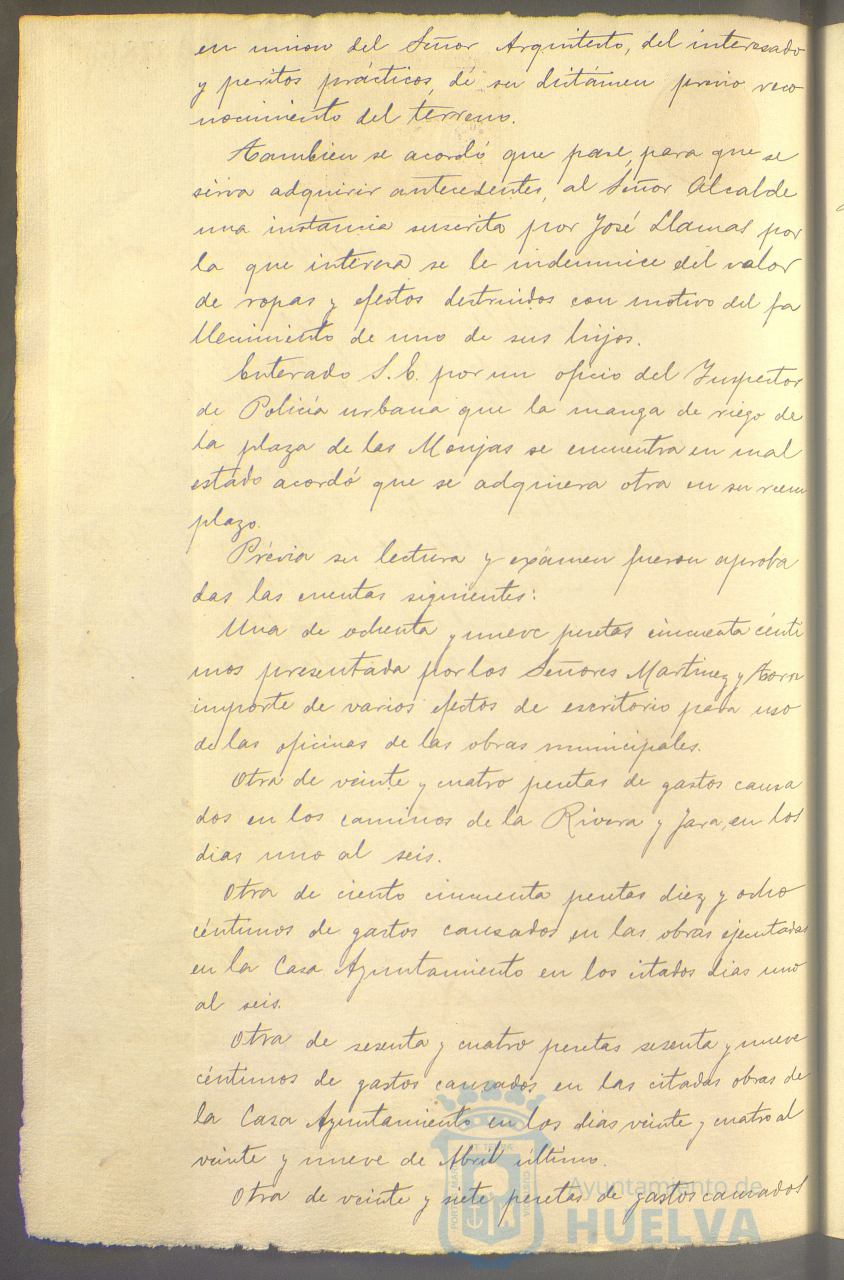 en union del Señor Arquitecto, del interesado
y peritos prácticos, dé su dictámen prévio reco
nocimiento del terreno.
Tambien se acordó que pase, para que se
sirva adquirir antecedentes, al Señor Alcalde
una instancia suscrita por José Llamas por
la que interesa se le indemnice del valor
de ropas y efectos destruidos con motivo del fa
llecimiento de uno de sus hijos.
Enterado S.E. por un oficio del Inspector
de Policía urbana que la manga de riego de
la plaza de las Monjas se encuentra en mal
estado acordó que se adquiera otra en su reem
plazo.
Prévia su lectura y exámen fueron aproba
das las cuentas siguientes:
Una de ochenta y nueve pesetas cincuenta cénti
mos presentada por los Señores Martinez y
importe de varios efectos de escritorio para uso
de las oficinas de las obras municipales.
Otra de veinte y cuatro pesetas de gastos causa
dos en los caminos de la Rivera y Jara, en los
dias uno al seis.
Otra de ciento cincuenta pesetas diez y ocho
céntimos de gastos causados en las obras ejecutadas
en la Casa Ayuntamiento en los citados dias uno
al seis.
Otra de sesenta y cuatro pesetas sesenta y nueve
céntimos de gastos causados en las citadas obras de
la Casa Ayuntamiento en los dias veinte y cuatro al
veinte y nueve de Abril último.
Otra de veinte y siete pesetas de gastos causados
Ayuntamiento de
HUELVA